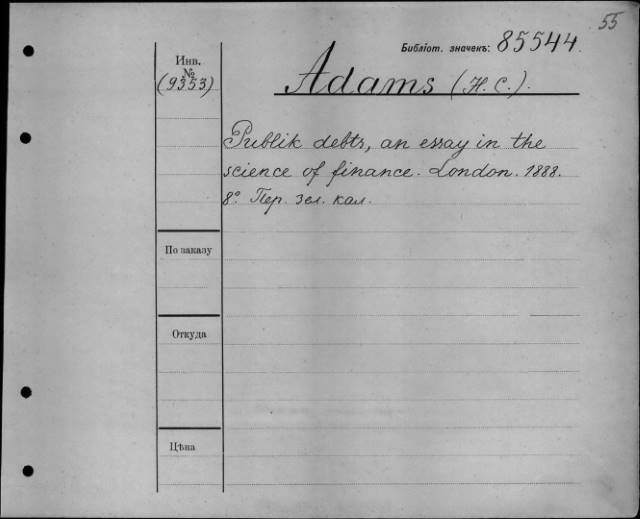 55
Библіот. значекъ: 85544
Инв.
№
(9353)
Adams (H. C.).
Publik debts, an essay in the
science of finance. London. 1888.
8° Пер. зел. кал.
По заказу
Откуда
Цѣна